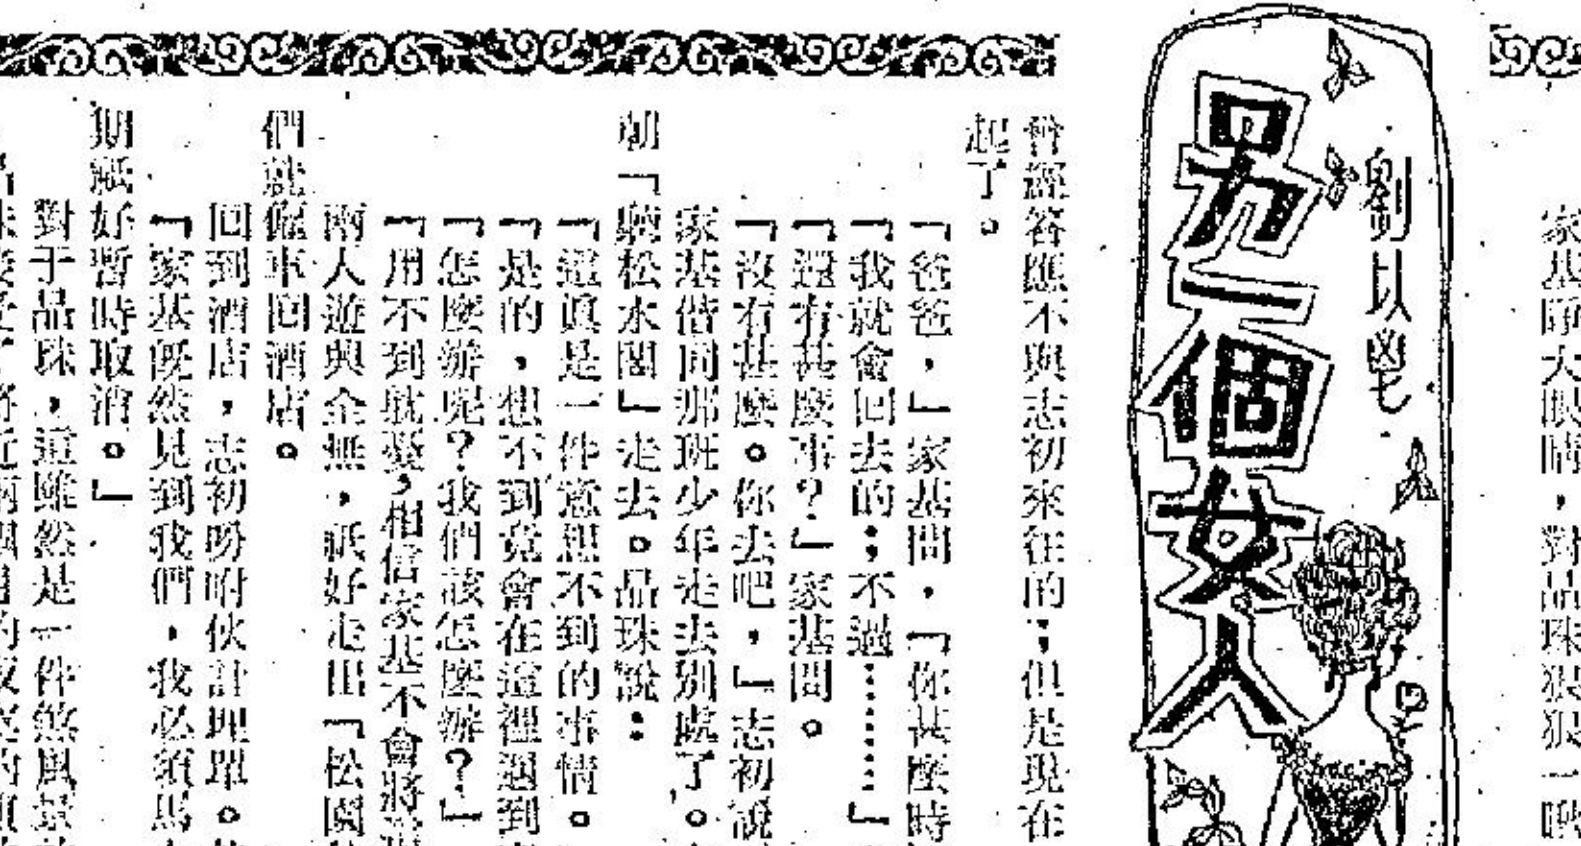 家基睜大眼睛，對品珠狠狠一瞅
劉以鬯
另一個女人
曾經答應不與志初來往的；但是現在
起了。
「爸爸，」家基問，「你甚麼時
「我就會回去的；不過………」
「還有甚麼事？」家基問。
「沒有甚麼。你去吧，」志初說
家基偕同那班少年走去別處了。
朝「聽松水閣」走去。品珠說：
「這眞是一件意想不到的事情。
「是的，想不到竟會在這裡遇到
「怎麼辦呢？我們該怎麼辦？」
「用不到躭憂，相信家基不會將
兩人遊興全無，祇好走出「松園
們就僱車囘酒店。
囘到酒店，志初吩咐伙計埋單。
「家基既然見到我們，我必須馬
期祇好暫時取消。」
對于品珠，這雖然是一件煞風景